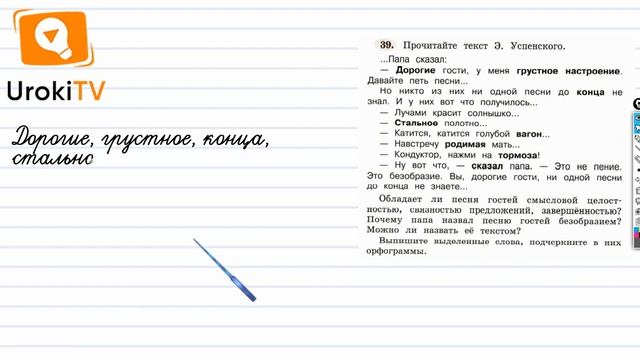 UrokiTV
Дорогие, грустное, конца,
стально
39. Прочитайте текст Э. Успенского.
...Папа сказал:
— Дорогие гости, у меня грустное настроение.
Давайте петь песни...
Но никто из них ни одной песни до конца не
знал. И у них вот что получилось...
— Лучами красит солнышко...
— Стальное полотно...
— Катится, катится голубой вагон...
— Навстречу родимая мать...
— Кондуктор, нажми на тормоза!
— Ну вот что, — сказал папа. — Это не пение.
Это безобразие. Вы, дорогие гости, ни одной песни
до конца не знаете...
Обладает ли песня гостей смысловой целост-
ностью, связностью предложений, завершённостью?
Почему папа назвал песню гостей безобразием?
Можно ли назвать её текстом?
Выпишите выделенные слова, подчеркните в них
орфограммы.